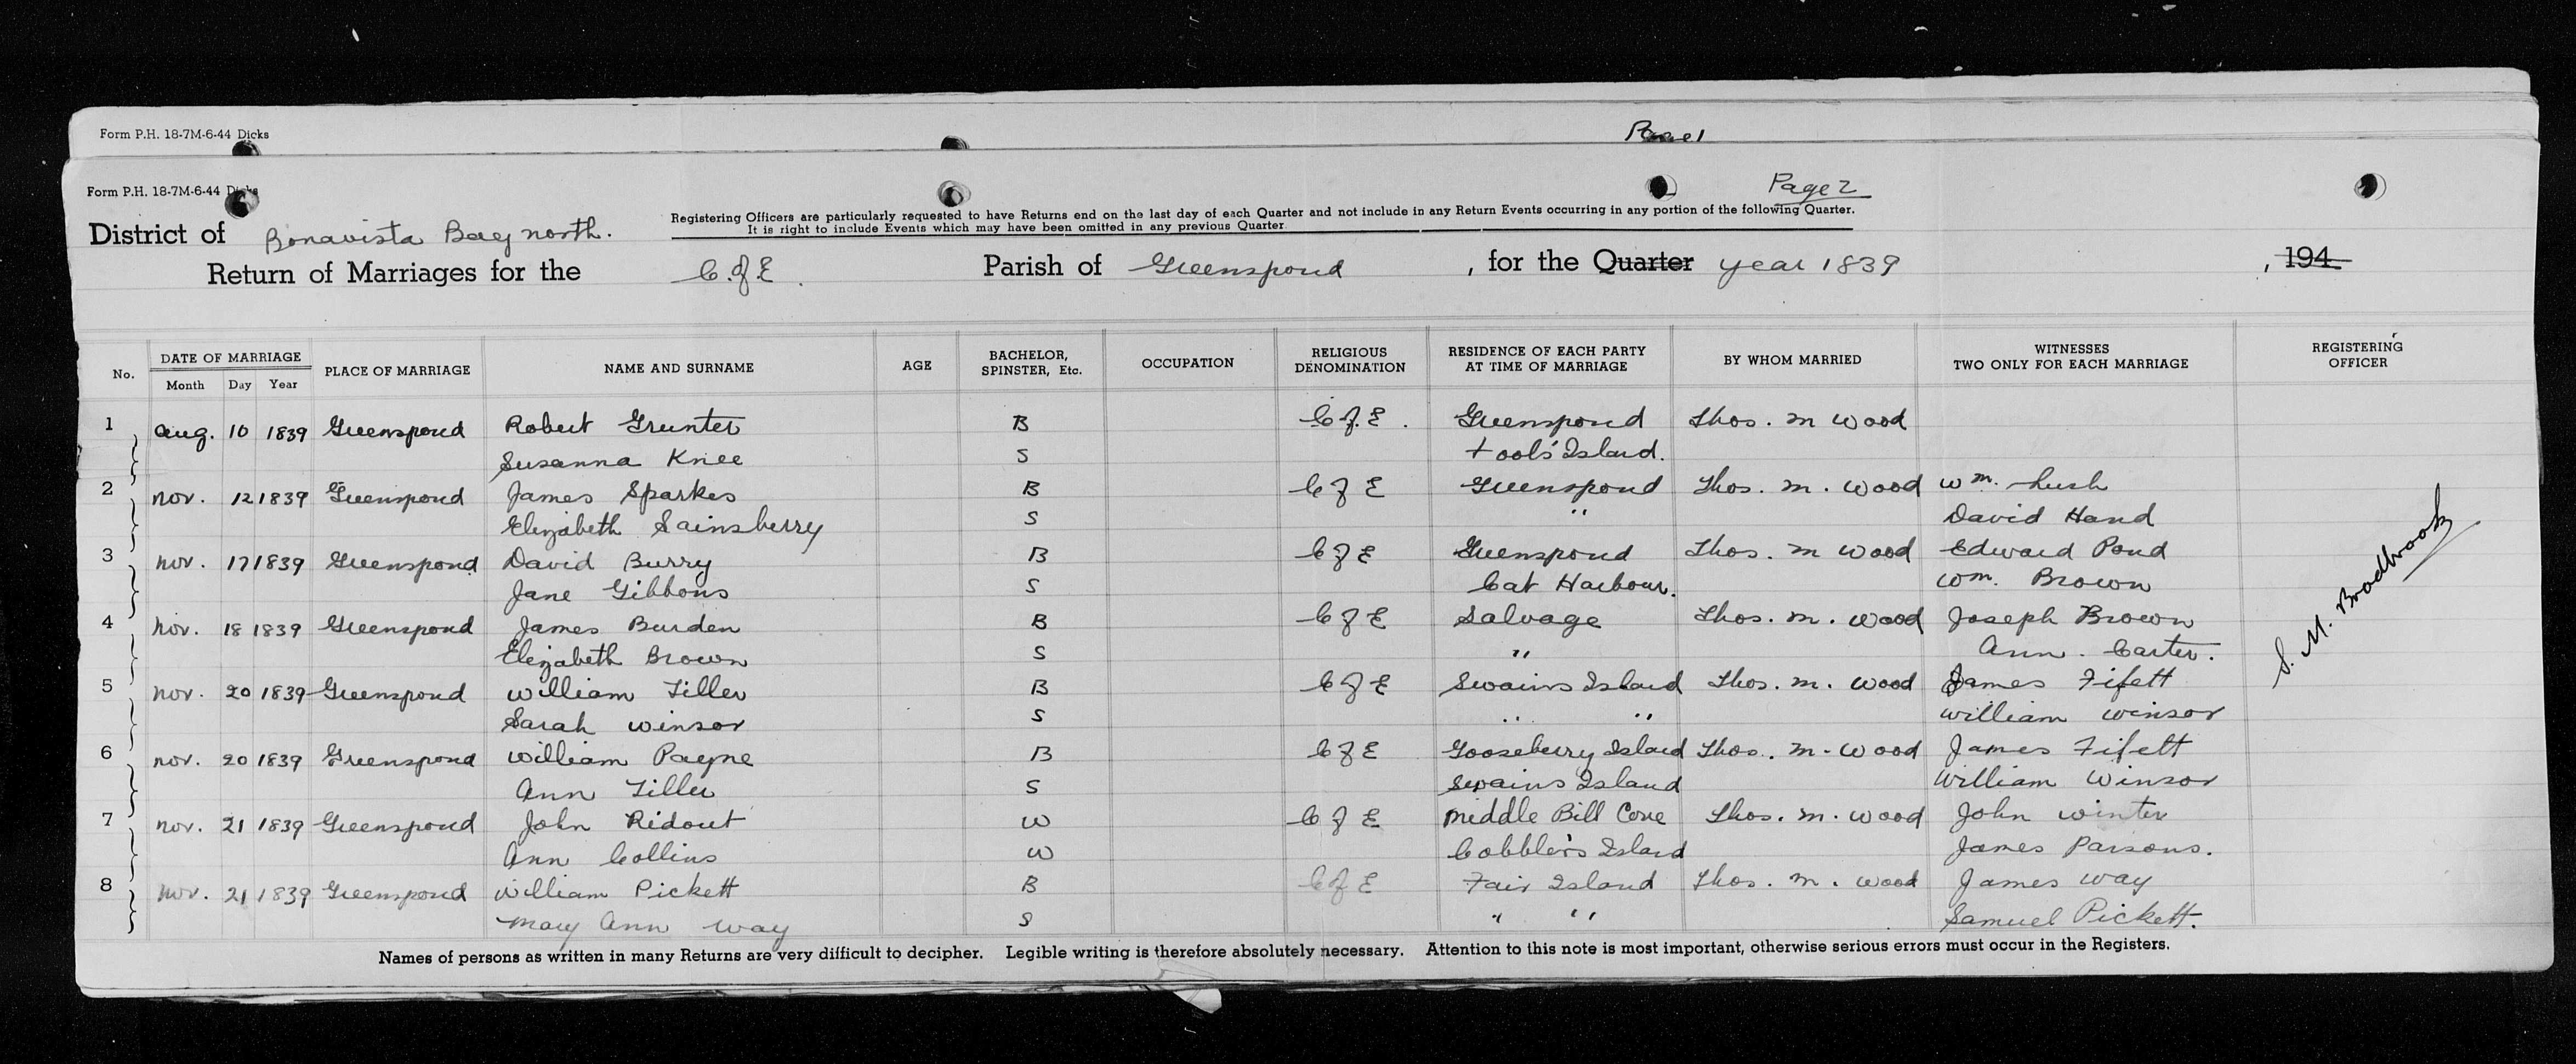 Form P.H. 18-7M-6-44 Dicks
Page 1
Form P.H. 18-7M-6-44 Dicks
Page 2
Registering Officers are particularly requested to have Returns end on the last day of each Quarter and not include in any Return Events occurring in any portion of the following Quarter.
It is right to include Events which may have been omitted in any previous Quarter
District of Bonavista Bay north.
Return of Marriages for the C. of E. Parish of Greenspond, for the Quarter year 1839, 194
No. DATE OF MARRIAGE PLACE OF MARRIAGE NAME AND SURNAME AGE BACHELOR, SPINSTER, Etc. OCCUPATION RELIGIOUS DENOMINATION RESIDENCE OF EACH PARTY AT TIME OF MARRIAGE BY WHOM MARRIED WITNESSES TWO ONLY FOR EACH MARRIAGE REGISTERING OFFICER
Month Day Year
1 Aug. 10 1839 Greenspond Robert Grunter B C of E. Greenspond Thos. M Wood
Susanna Knee S Fools Island.
2 Nov. 12 1839 Greenspond James Sparkes B C of E Greenspond Thos. M. Wood Wm. Lush
Elizabeth Sainsberry S " David Hand
3 Nov. 17 1839 Greenspond David Burry B C of E Greenspond Thos. M Wood Edward Pond
Jane Gibbons S Cat Harbour. Wm. Brown
4 Nov. 18 1839 Greenspond James Burden B C of E Salvage Thos. M. Wood Joseph Brown
Elizabeth Brown S " Ann. Carter.
5 Nov. 20 1839 Greenspond William Tiller B C of E Swains Island Thos. M. Wood James Fifett
Sarah Winsor S " " William Winsor
6 Nov. 20 1839 Greenspond William Payne B C of E Gooseberry Island Thos. M. Wood James Fifett
Ann Tiller S Swains Island William Winsor
7 Nov. 21 1839 Greenspond John Ridout W C of E Middle Bill Cove Thos. M. Wood John Winter
Ann Collins W Cobbler's Island James Parsons.
8 Nov. 21 1839 Greenspond William Pickett B C of E Fair Island Thos. M. Wood James Way
Mary Ann Way S " " Samuel Pickett.
S. M. Bradbrook
Names of persons as written in many Returns are very difficult to decipher. Legible writing is therefore absolutely necessary. Attention to this note is most important, otherwise serious errors must occur in the Registers.